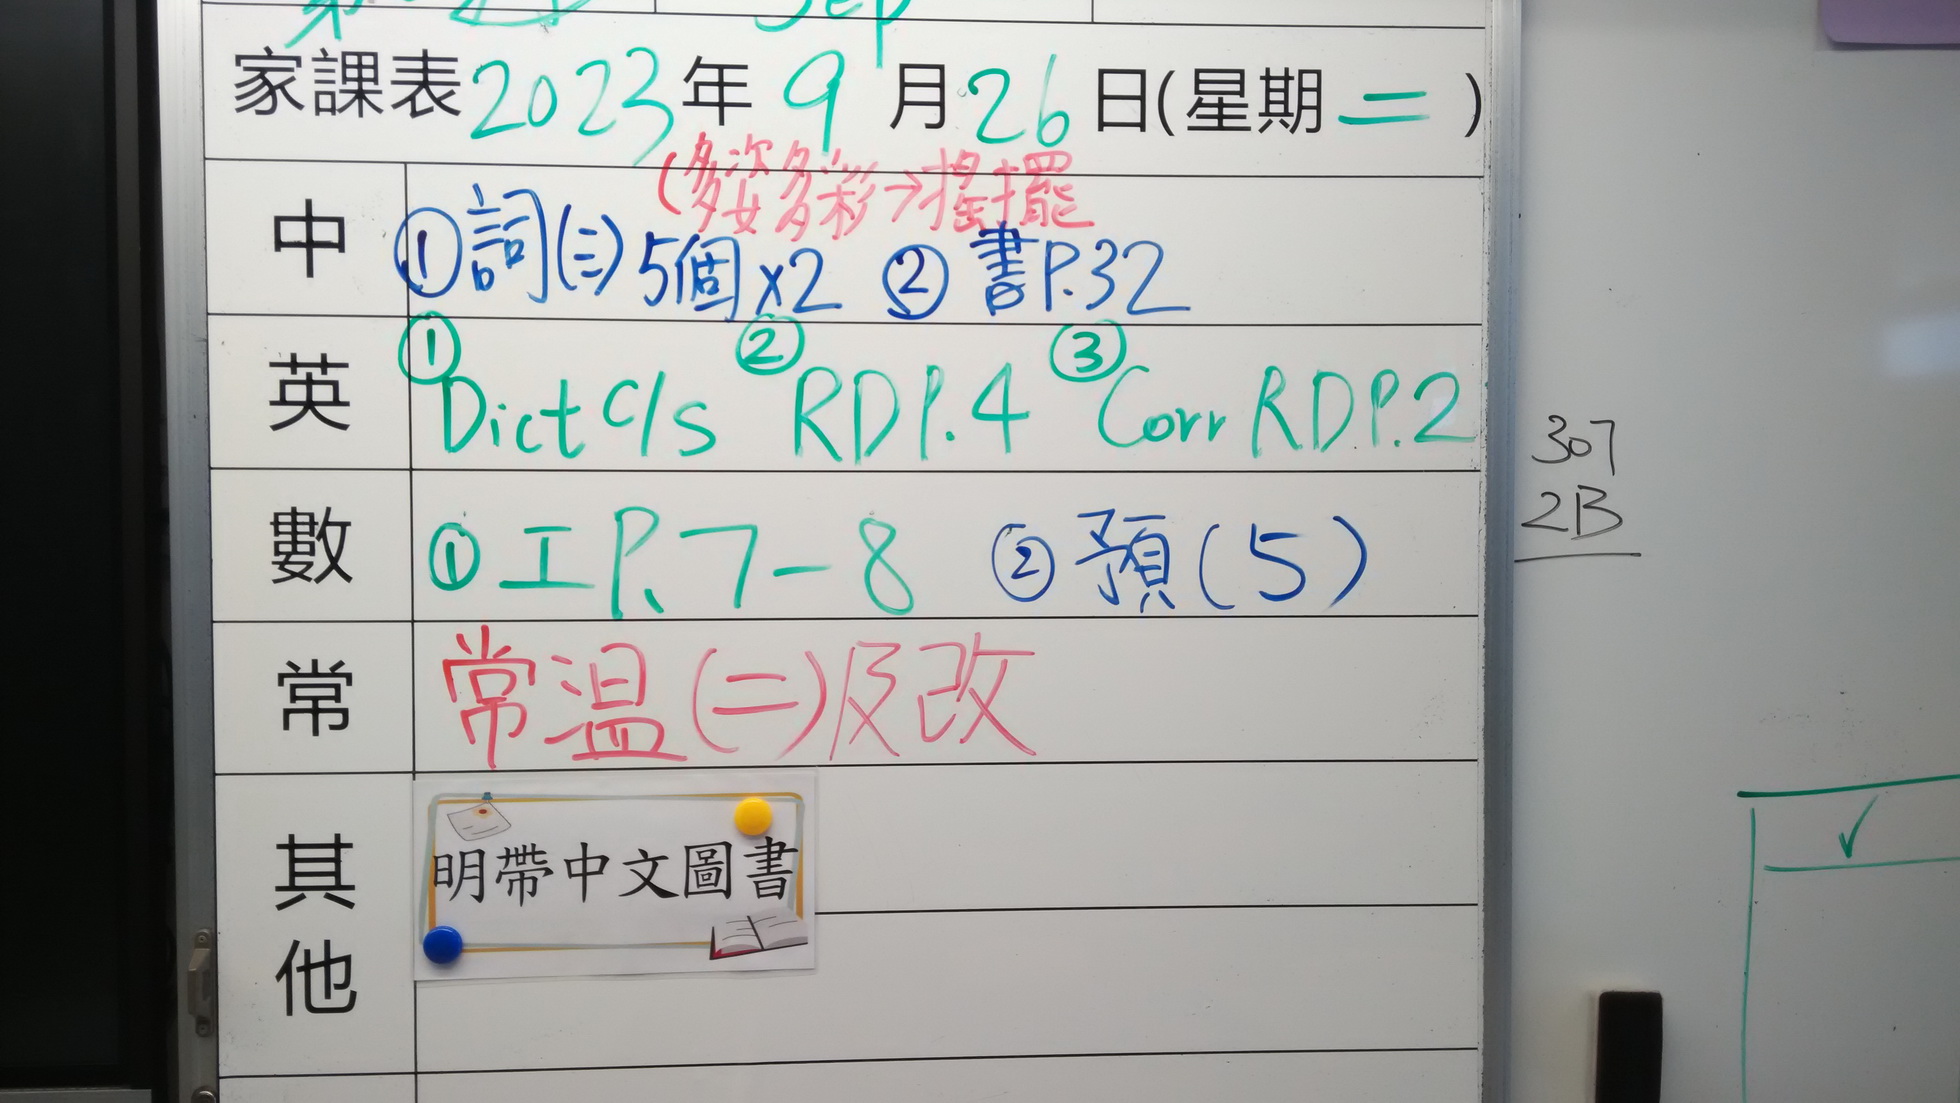 Sep
家課表2023年9月26日(星期二)
(多姿多彩→搖擺
中 ①詞(三)5個x2 ②書P.32
英 ①Dict c/s ②RD P.4 ③Corr RD P.2
數 ①工P.7-8 ②預(5)
常 常温(二)及改
其他 明帶中文圖書
307
2B